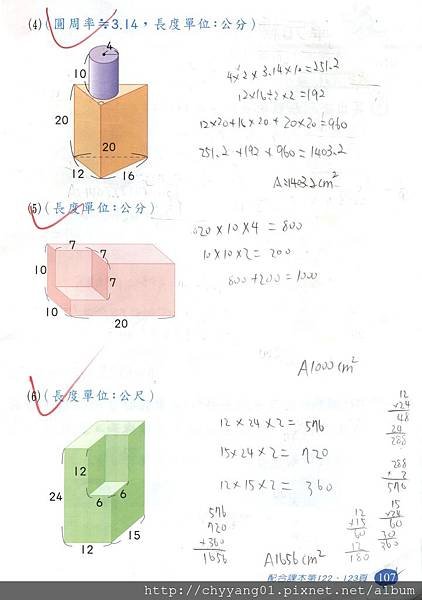 (4)(圓周率≒3.14，長度單位：公分)
4
10
20
20
12
16
4×2×3.14×10=251.2
12×16÷2×2=192
12×20+16×20+20×20=960
251.2+192+960=1403.2
A:1403.2cm²
(5)(長度單位：公分)
7
7
7
10
10
20
20×10×4=800
10×10×2=200
800+200=1000
A1000cm²
(6)(長度單位：公尺)
12
24
6
6
12
15
12×24×2=576
15×24×2=720
12×15×2=360
576
720
+360
1656
A1656cm²
12
×24
48
24
288
288
×2
576
15
×24
60
30
360
12
×15
60
12
180
配合課本第122、123頁
107
http://chyyang01.pixnet.net/album